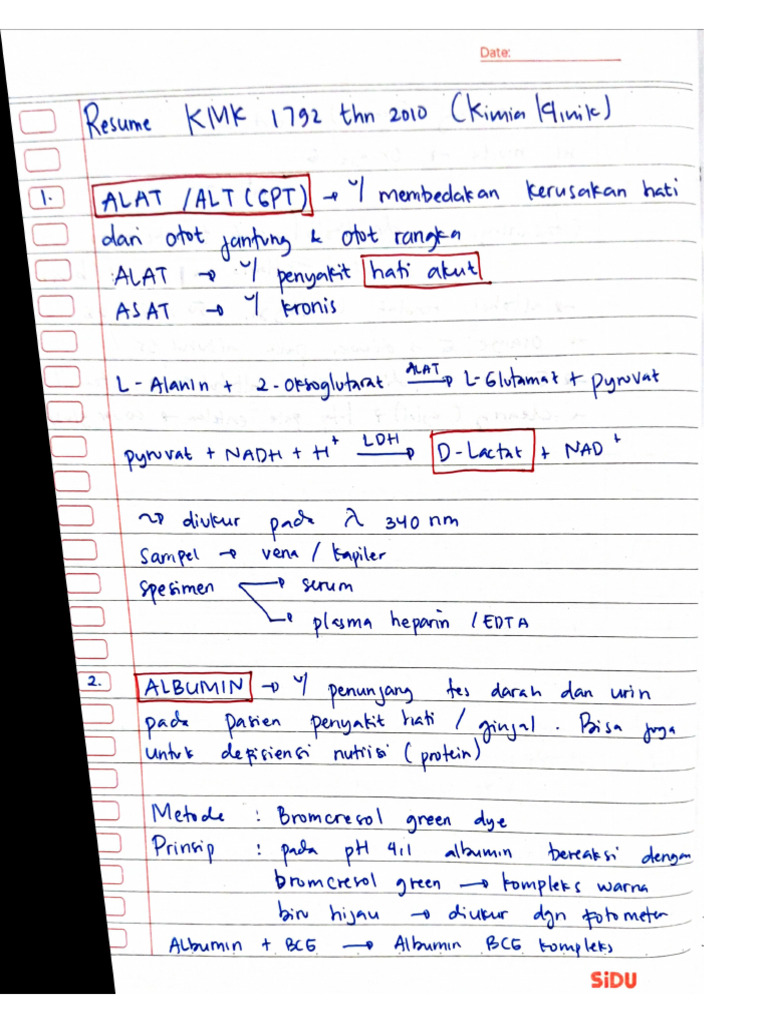 Date:
Resume KMK 1792 thn 2010 (Kimia Klinik)
1. ALAT / ALT (GPT) → u/ membedakan kerusakan hati
dari otot jantung & otot rangka
ALAT → u/ penyakit hati akut
ASAT → u/ kronis
L-Alanin + 2-Oksoglutarat ALAT→ L-Glutamat + pyruvat
pyruvat + NADH + H⁺ LDH→ D-Lactat + NAD⁺
~> diukur pada λ 340 nm
Sampel → vena / kapiler
Spesimen → serum
→ plasma heparin / EDTA
2. ALBUMIN → u/ penunjang tes darah dan urin
pada pasien penyakit hati / ginjal. Bisa juga
untuk defisiensi nutrisi (protein)
Metode : Bromcresol green dye
Prinsip : pada pH 4,1 albumin bereaksi dengan
bromcresol green → kompleks warna
biru hijau → diukur dgn fotometer
Albumin + BCG → Albumin BCG kompleks
SiDU